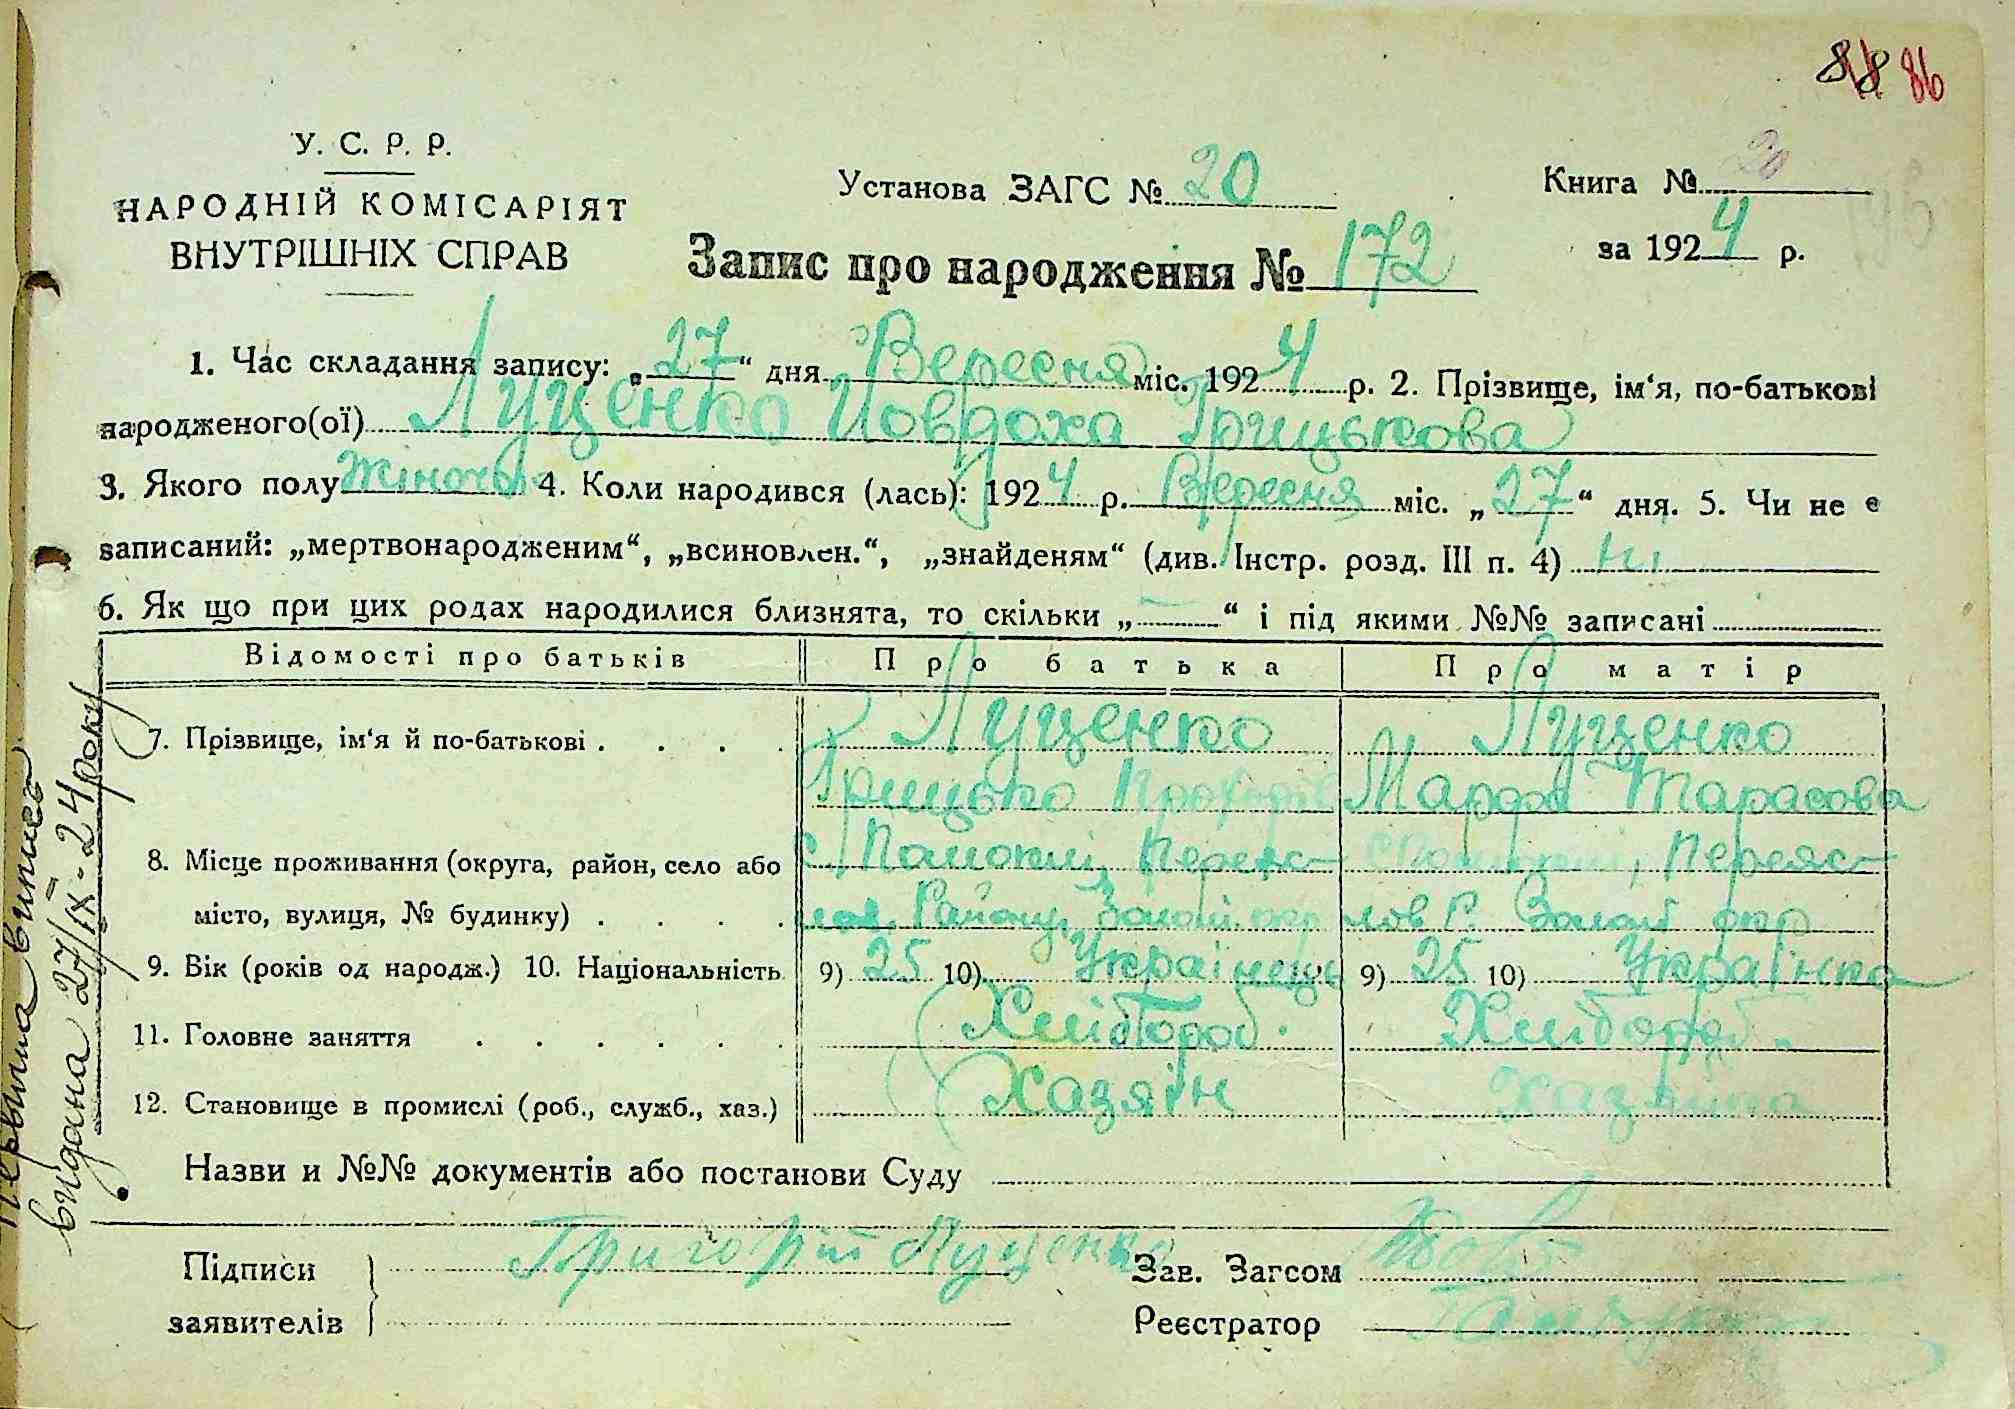 88 86
У. С. Р. Р.
НАРОДНІЙ КОМІСАРІЯТ
ВНУТРІШНІХ СПРАВ
Установа ЗАГС № 20
Книга № 20
за 1924 р.
Запис про народження № 172
1. Час складання запису: „27“ дня Вересня міс. 1924 р. 2. Прізвище, ім‘я, по-батькові
народженого(ої) Луценко Йовдоха Грицькова
3. Якого полу жіночого 4. Коли народився (лась): 1924 р. Вересня міс. „27“ дня. 5. Чи не є
записаний: „мертвонародженим“, „всиновлен.“, „знайденям“ (див. Інстр. розд. III п. 4) ні
6. Як що при цих родах народилися близнята, то скільки „—“ і під якими №№ записані
Відомості про батьків Про батька Про матір
7. Прізвище, ім‘я й по-батькові Луценко Луценко
Грицько Марфа Тарасова
8. Місце проживання (округа, район, село або с Помоклі, Переяс- с Помоклі, Переяс-
місто, вулиця, № будинку) лов. Району, Золот. окр лов Р. Золот окр
9. Вік (років од народж.) 10. Національність 9) 25 10) Українець 9) 25 10) Українка
11. Головне заняття Хлібороб. Хлібороб.
12. Становище в промислі (роб., служб., хаз.) Хазяїн Хазяйка
Назви и №№ документів або постанови Суду
Підписи Григорій Луценко Зав. Загсом
заявителів Реєстратор
Первина випись
видана 27/IX-24 року